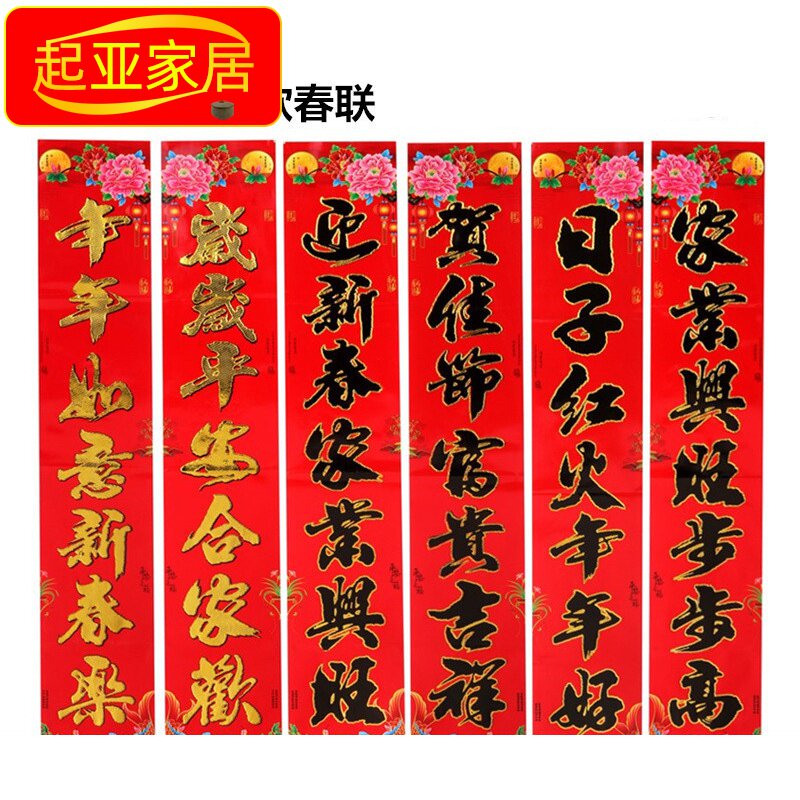 起亚家居
春联
年年如意新春樂
歲歲平安合家歡
迎新春家業興旺
賀佳節富貴吉祥
日子红火年年好
家業興旺步步高